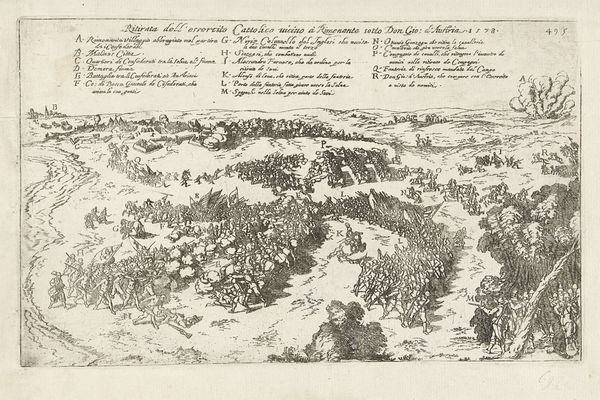 Ritirata dell'essercito Cattolico vicino à Rimenante sotto Don Gio: d'Austria. 1578. 495
A. Rimenante Villaggio abbrugiato nel partire
de i Confederati.
B. Malines Città.
C. Quartiere de Confederati tra la Selva, e'l fiume
D. Demera fiume.
E. Battaglia tra li Confederati, et
F. Co: di Bossu Generale de Confederati, che
anima la sua gente.
G. Norits Colonnello del Inglesi che
tre cavalli monta il terzo
H. Scozzesi, che combattono nudi
I. Alessandro Farnese, che dà ordine per la
ritirata de suoi
K. Alonso di Leva, che ritira parte della fanteria
L. Parte della fanteria fatta girare verso la Selva.
M. nella Selva per aiuto de Suoi
N. Ottavio Gonzaga che ritira la cavalleria
O. Cavalleria che gira verso la Selva.
P. Compagnia de cavalli, che
nemici nella ritirata de Compagni
Q. Fanteria di rinforzo mandata dal Campo
R. Don Gio: d'Austria, che compare con l'Essercito
a vista de nemici.
B
P